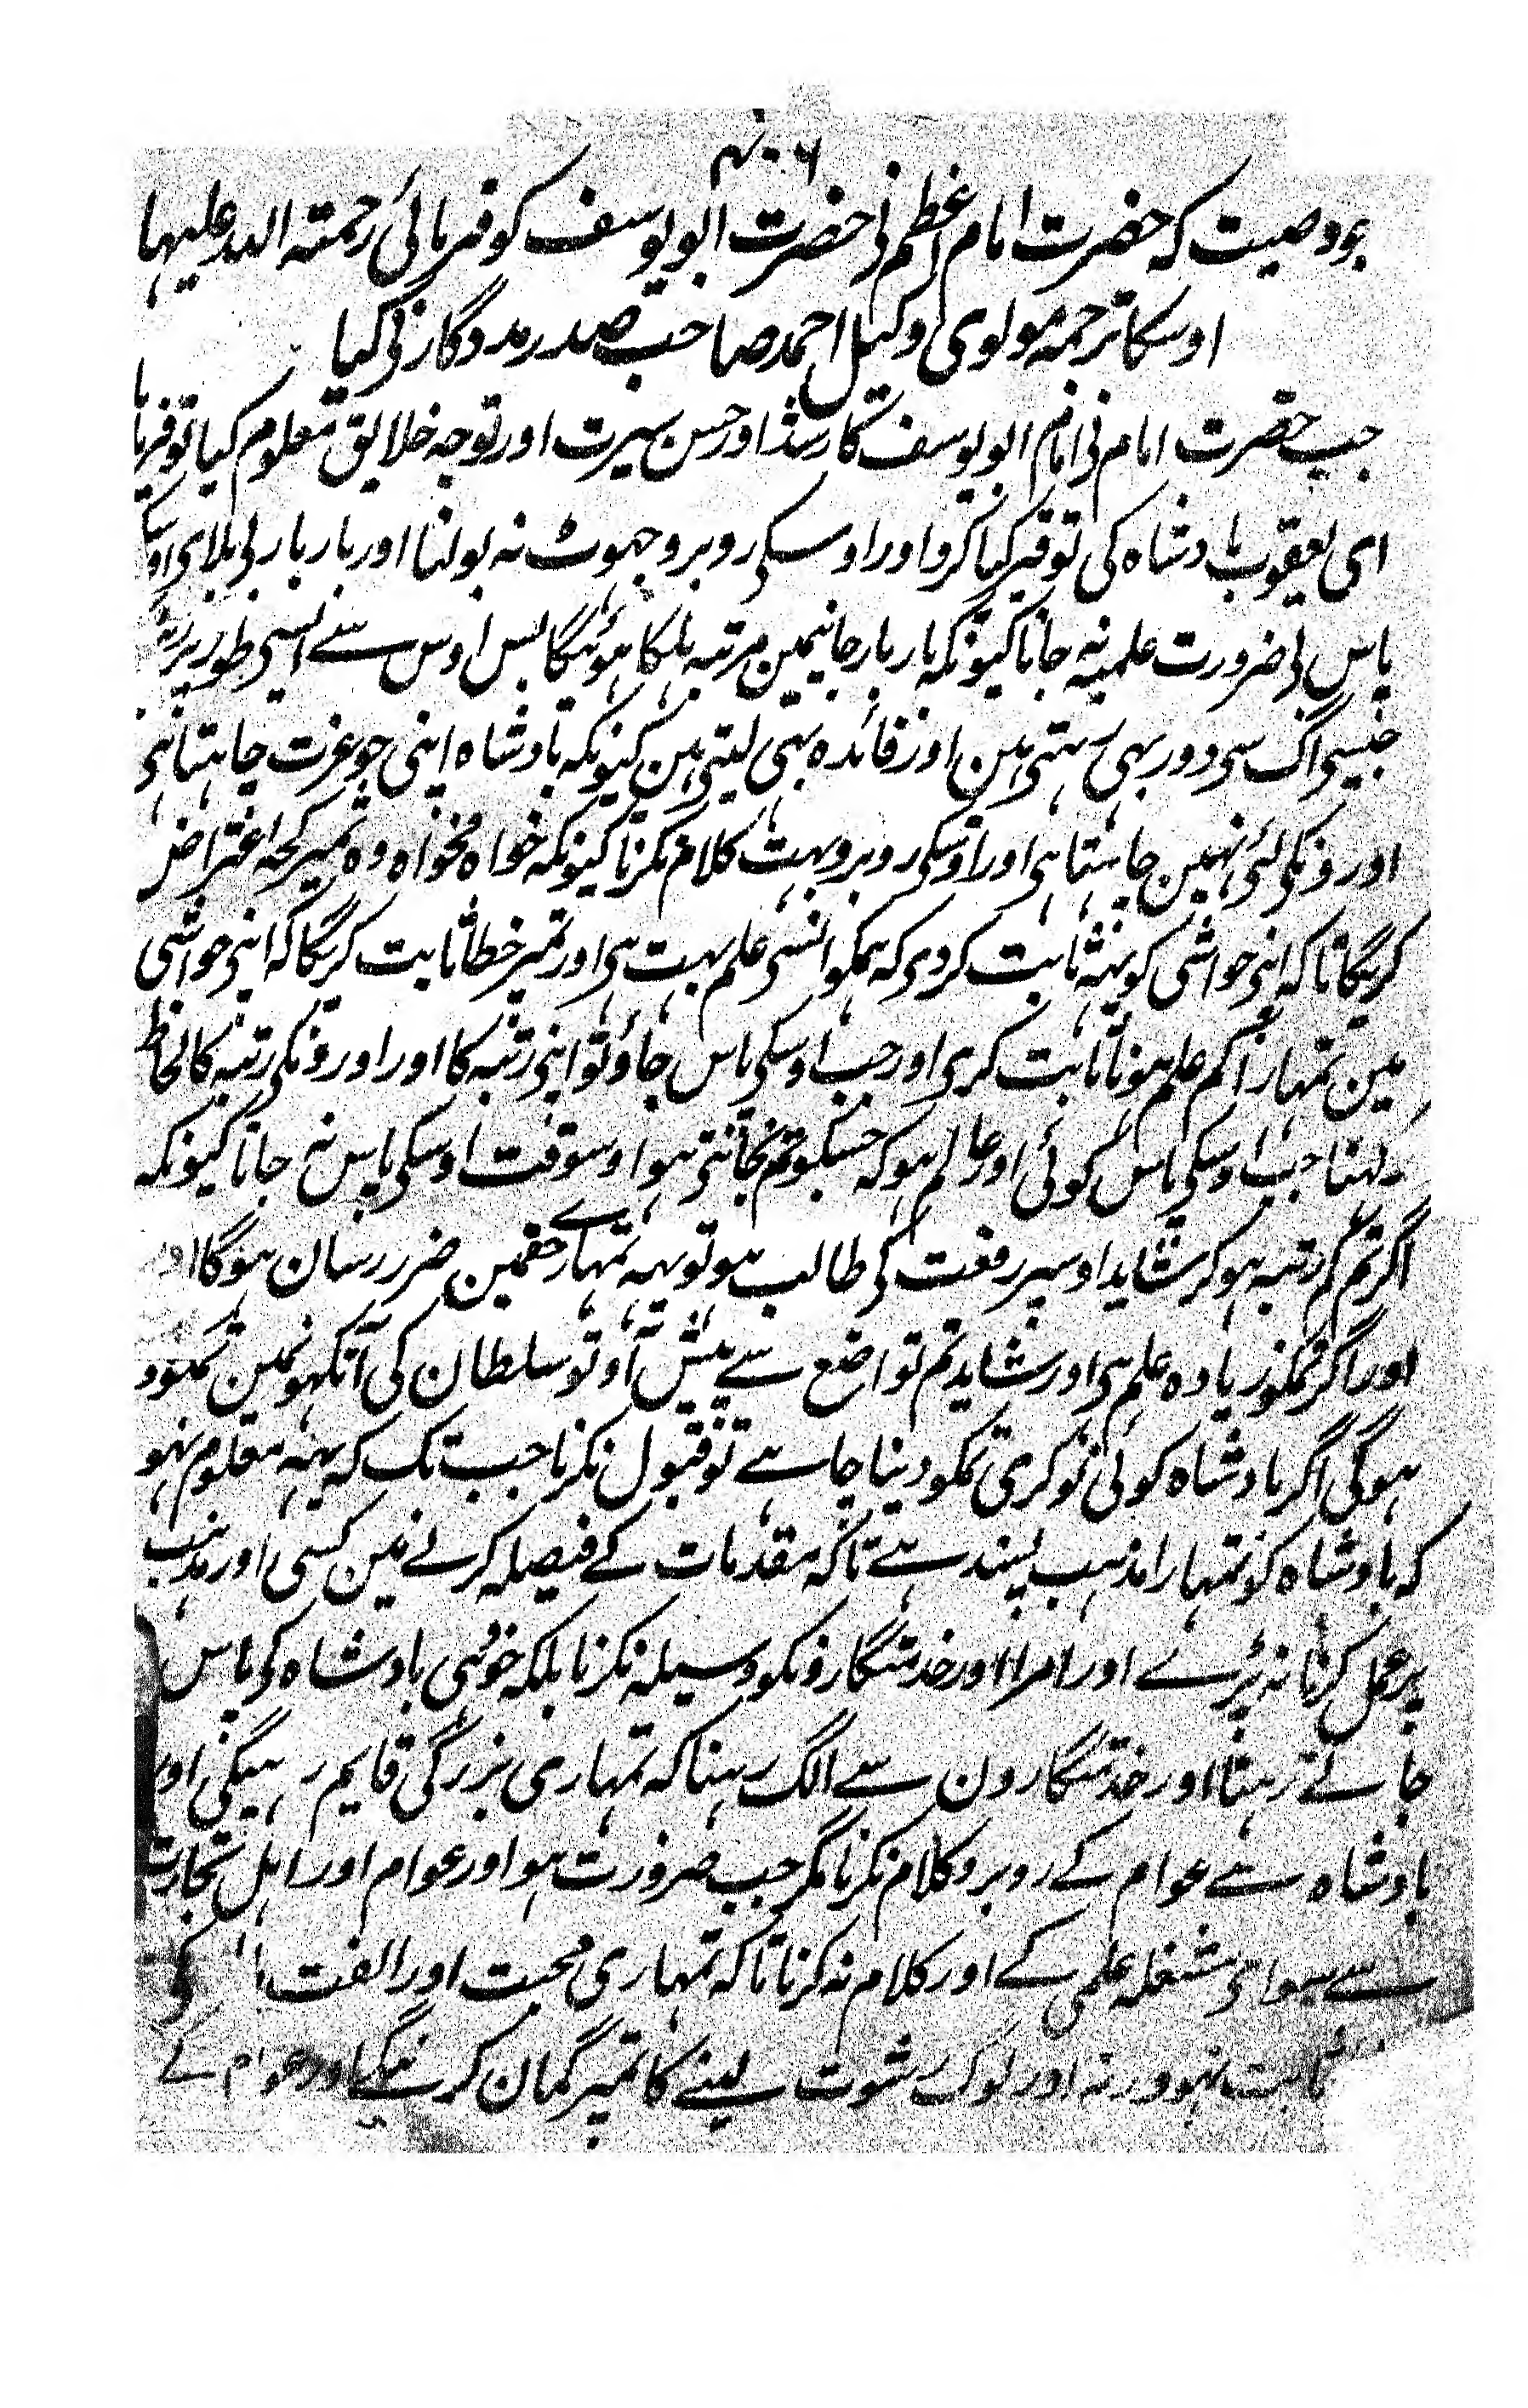 جو وصیت کہ حضرت امام اعظم نی حضرت ابو یوسف کو فرمائی رحمتہ اللہ علیہا
اوسکا ترجمہ مولوی وکیل احمد صاحب صدر مددگار نی کیا
جب حضرت امام نی امام ابو یوسف کا رشد اور حسن سیرت اور توجہ خلایق معلوم کیا تو فرمایا
ای یعقوب بادشاہ کی توقیر کیا کرو اور اوسکی روبرو جہوٹ نہ بولنا اور بار بار بی بلای اوسکی
پاس بی ضرورت علمیہ نہ جانا کیونکہ بار بار جانیمین مرتبہ ہلکا ہوئیگا بس اوس سے ایسی طور پر
جیسی آگ سی دور بہی رہتی ہین اور فائدہ بہی لیتی ہین کیونکہ بادشاہ اپنی جو عزت چاہتا ہی
اورونکی لئی نہین چاہتا ہی اور اوسکی روبرو بہت کلام نکرنا کیونکہ خواہ مخواہ وہ تمپر کچہ اعتراض
کریگا تاکہ اپنی حواشی کو یہہ ثابت کردی کہ ہمکو انسی علم بہت ہی اور تمپر خطا ثابت کریگا کہ اپنی حواشی
مین تمہارا کم علم ہونا ثابت کری اور جب اوسکی پاس جاؤ تو اپنی رتبہ کا اور اورونکی رتبہ کا لحاظ
رکہنا جب اوسکی پاس کوئی اور عالم ہو کہ جسکو تم نجانتی ہو اوسوقت اوسکی پاس نہ جانا کیونکہ
اگر تم کم رتبہ ہو کر شاید اوسپر رفعت کی طالب ہو تو یہہ تمہارے حقمین ضرر رسان ہوگا اور
اور اگر تمکو زیادہ علم ہی اور شاید تم تواضع سے پیش آو تو سلطان کی آنکہونمین
ہوگی اگر بادشاہ کوئی نوکری تمکو دینا چاہے تو قبول نکرنا جب تک کہ یہہ معلوم نہو
کہ بادشاہ کو تمہارا مذہب پسند ہے تاکہ مقدمات کے فیصلہ کرنے مین کسی اور مذہب
پر عمل کرنا نہ پڑے اور امرا اور خدمتگارونکو وسیلہ نکرنا بلکہ خود ہی بادشاہ کی پاس
جاتے رہنا اور خدمتگارون سے الگ رہنا کہ تمہاری بزرگی قایم رہیگی اور
بادشاہ سے عوام کے روبرو کلام نکرنا مگر جب ضرورت ہو اور عوام اور اہل تجارت
سے سوای مشغلہ علمی کے اور کلام نہ کرنا تاکہ تمہاری محبت اور الفت کی
ثابت نہو ورنہ اور لوگ رشوت لینے کا تمپر گمان کرینگے اور عوام کے